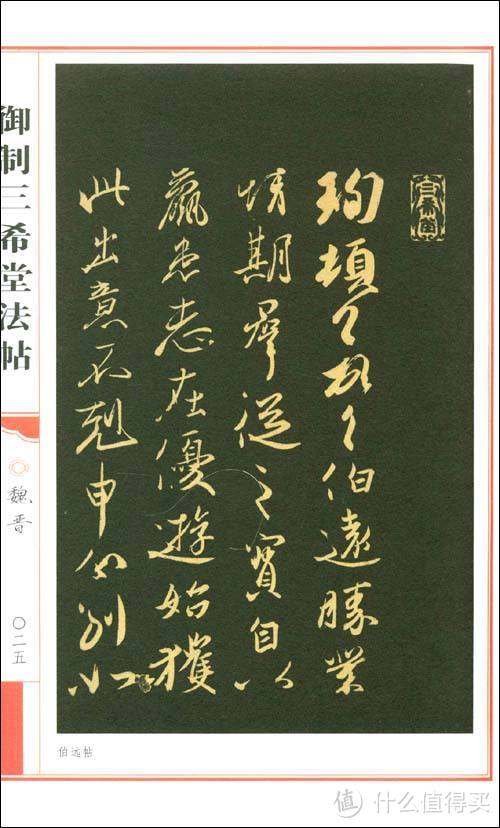 珣頓首頓首伯遠勝業
情期羣從之寶自以
羸患志在優遊始獲
此出意不剋申分別如
御制三希堂法帖
魏晋
〇二五
伯远帖
值 什么值得买